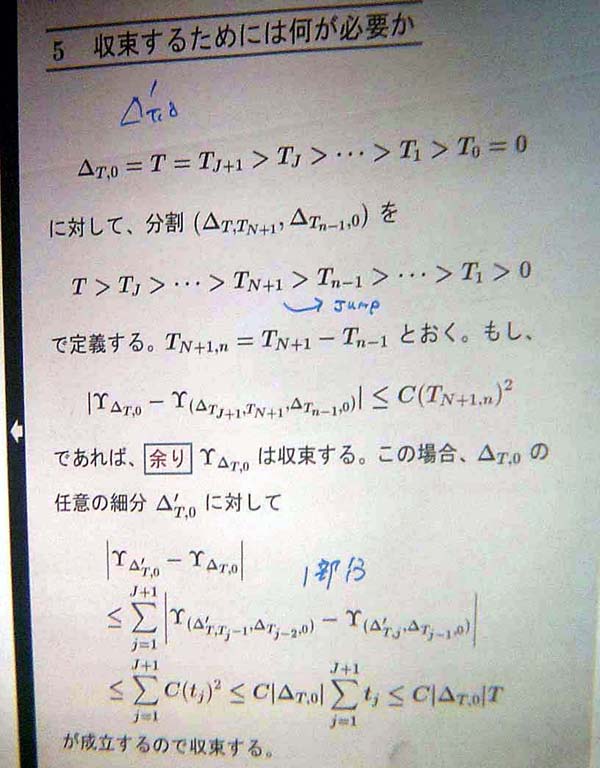 5 収束するためには何が必要か
Δ'_{T,0}
Δ_{T,0} = T = T_{J+1} > T_J > ··· > T_1 > T_0 = 0
に対して、分割 (Δ_{T,T_{N+1}}, Δ_{T_{n-1},0}) を
T > T_J > ··· > T_{N+1} > T_{n-1} > ··· > T_1 > 0
Jump
で定義する。T_{N+1,n} = T_{N+1} − T_{n-1} とおく。もし、
|Υ_{Δ_{T,0}} − Υ_{(Δ_{T_{J+1},T_{N+1}}, Δ_{T_{n-1},0})}| ≤ C(T_{N+1,n})^2
であれば、余り Υ_{Δ_{T,0}} は収束する。この場合、Δ_{T,0} の
任意の細分 Δ'_{T,0} に対して
|Υ_{Δ'_{T,0}} − Υ_{Δ_{T,0}}|
1部分
≤ \sum_{j=1}^{J+1} |Υ_{(Δ'_{T,T_{j-1}}, Δ_{T_{j-2},0})} − Υ_{(Δ'_{T,j}, Δ_{T_{j-1},0})}|
≤ \sum_{j=1}^{J+1} C(t_j)^2 ≤ C|Δ_{T,0}| \sum_{j=1}^{J+1} t_j ≤ C|Δ_{T,0}|T
が成立するので収束する。